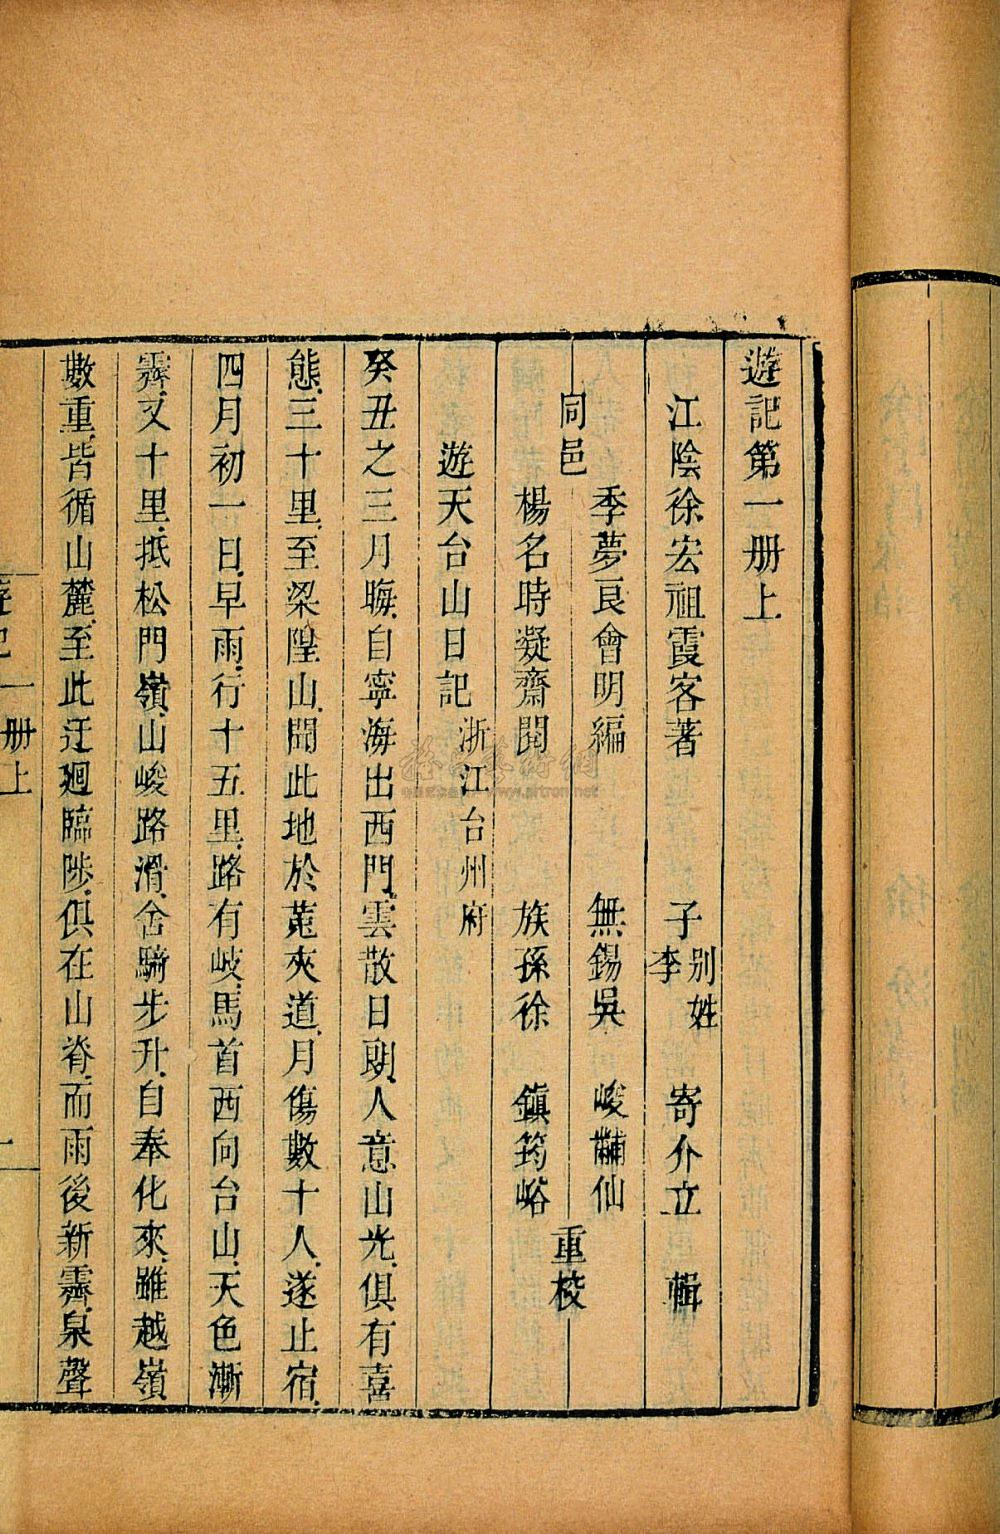 遊記第一册上
江陰徐宏祖霞客著
子
别姓
李
寄介立
輯
同邑
季夢良會明編
楊名時凝齋閱
無錫吳
峻黼仙
族孫徐
鎮筠峪
重校
遊天台山日記
浙江台州府
癸丑之三月晦自寧海出西門雲散日朗人意山光俱有喜
態三十里至梁隍山聞此地於菟夾道月傷數十人遂止宿
四月初一日早雨行十五里路有岐馬首西向台山天色漸
霽又十里抵松門嶺山峻路滑舍騎步升自奉化來雖越嶺
數重皆循山麓至此迂廻臨陟俱在山脊而雨後新霽泉聲
遊記一册上
一
雅昌藝術網
www.artron.net